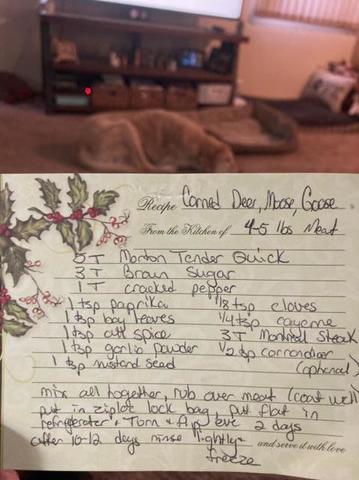 Recipe Corned Deer, Moose, Goose
From the Kitchen of 4-5 lbs Meat
5 T Morton Tender Quick
3 T Brown Sugar
1 T cracked pepper
1 tsp paprika 1/8 tsp cloves
1 tsp bay leaves 1/4 tsp cayenne
1 tsp all spice 3 T Montreal Steak
1 tsp garlic powder 1/2 tsp corrondior
1 tsp mustard seed (optional)
mix all together, rub over meat (coat well)
put in ziploc lock bag, put flat in
refrigerator, Torn + flip eve 2 days
after 10-12 days rinse lightly +
and serve it with love
freeze